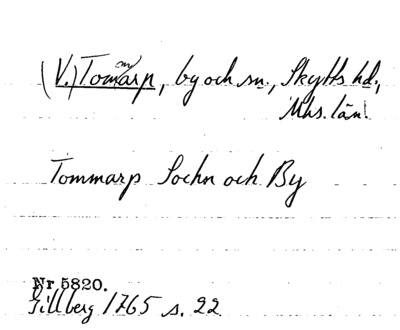 (V.) Tommarp, by och sn., Skytts hd.,
Mhs. län.
Tommarp Sochn och By
Nr 5820.
Gillberg 1765 s. 22